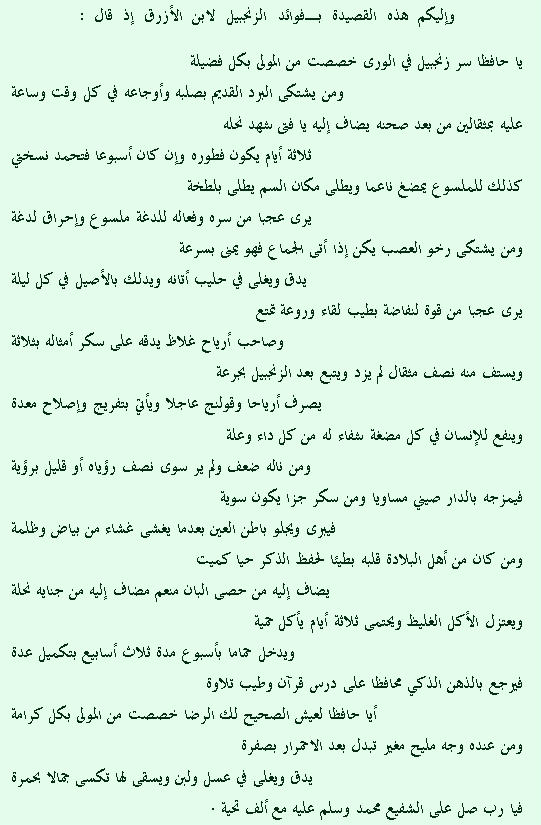 وإليكم هذه القصيدة بـــفوائد الزنجبيل لابن الأزرق إذ قال :
يا حافظا سر زنجبيل في الورى خصصت من المولى بكل فضيلة
ومن يشتكى البرد القديم بصلبه وأوجاعه في كل وقت وساعة
عليه بمثقالين من بعد صحنه يضاف إليه يا فتى شهد نحله
ثلاثة أيام يكون فطوره وإن كان أسبوعا فتحمد نسختي
كذلك للملسوع يمضغ ناعما ويطلى مكان السم يطلى بلطخة
يرى عجبا من سره وفعاله للدغة ملسوع وإحراق لدغة
ومن يشتكى رخو العصب يكن إذا أتى الجماع فهو يمنى بسرعة
يدق ويغلى في حليب أتانه ويدلك بالأصيل في كل ليلة
يرى عجبا من قوة لنفاضة بطيب لقاء وروعة تمتع
وصاحب أرياح غلاظ يدقه على سكر أمثاله بثلاثة
ويستف منه نصف مثقال لم يزد ويتبع بعد الزنجبيل بجرعة
يصرف أرياحا وقولنج عاجلا ويأتي بتفريج وإصلاح معدة
وينفع للإنسان في كل مضغة شفاء له من كل داء وعلة
ومن ناله ضعف ولم ير سوى نصف رؤياه أو قليل برؤية
فيمزجه بالدار صيني مساويا ومن سكر جزا يكون سوية
فيبرى ويجلو باطن العين بعدما يغشى غشاء من بياض وظلمة
ومن كان من أهل البلادة قلبه بطيئا لحفظ الذكر حيا كميت
يضاف إليه من حصى البان منعم مضاف إليه من جنايه نحلة
ويعتزل الأكل الغليظ ويحتمى ثلاثة أيام يأكل حمية
ويدخل حماما بأسبوع مدة ثلاث أسابيع بتكميل عدة
فيرجع بالذهن الذكي محافظا على درس قرآن وطيب تلاوة
أيا حافظا لعيش الصحيح لك الرضا خصصت من المولى بكل كرامة
ومن عنده وجه مليح مغير تبدل بعد الاحمرار بصفرة
يدق ويغلى في عسل ولبن ويسقى لها تكسى جمالا بحمرة
فيا رب صل على الشفيع محمد وسلم عليه مع ألف تحية .